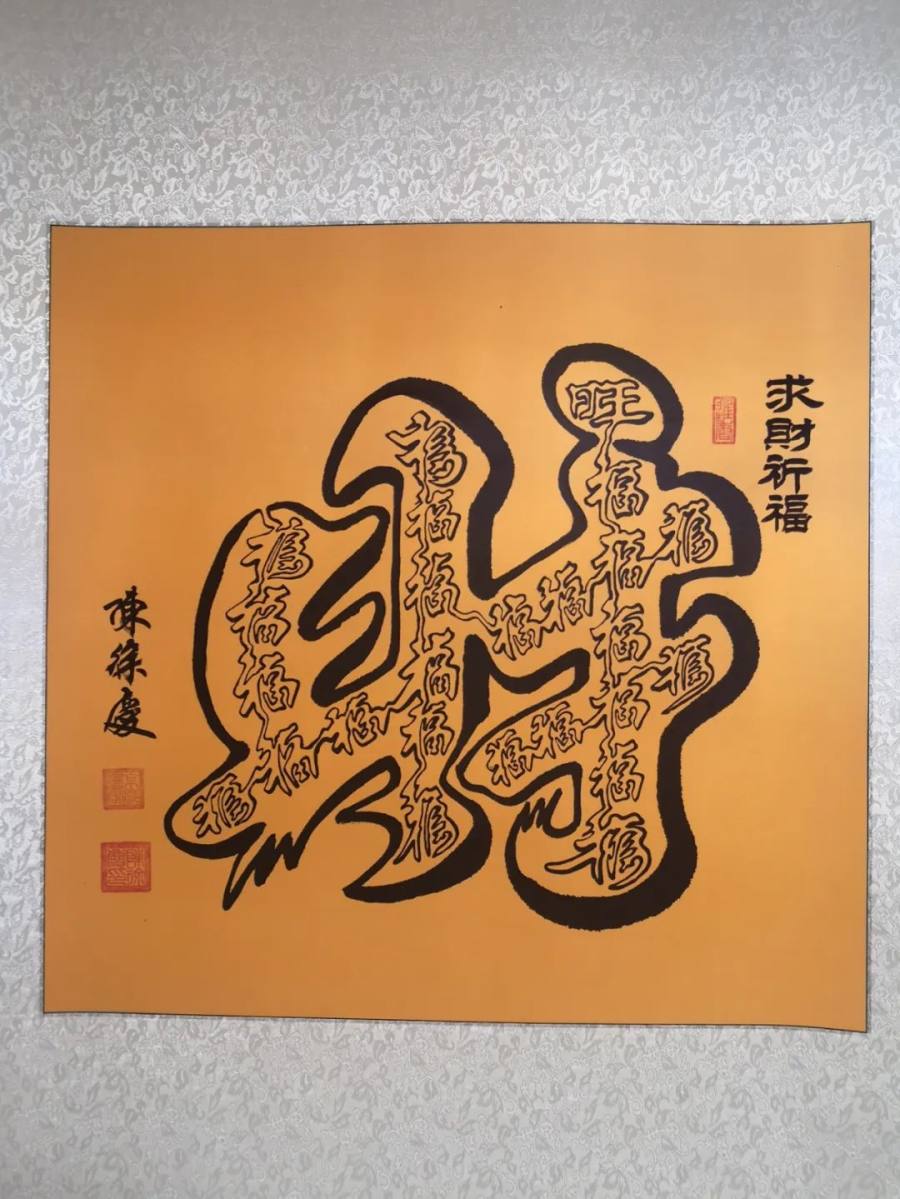 求財祈福
旺福福福福福福
福福
福福
福福
福福福福福福
福福福福福福
陳徐慶